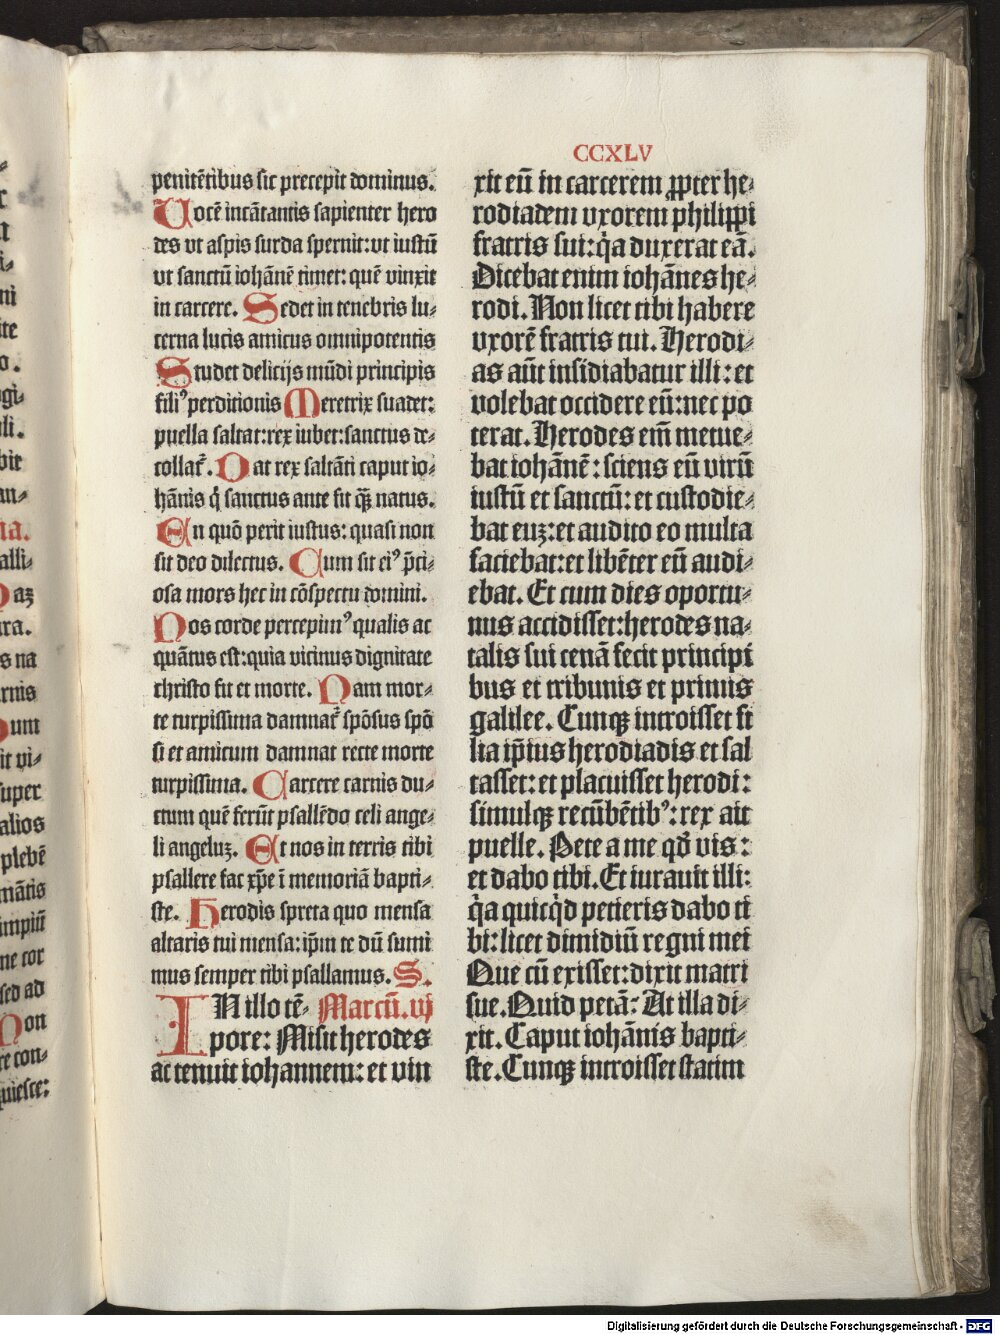 CCXLV
penitētibus sic precepit dominus.
Uocē incātantis sapienter hero
des vt aspis surda spernit: vt iustū
vt sanctū iohānē timet: quē vinxit
in carcere. Sedet in tenebris lu⸗
cerna lucis amicus omnipotentis
Studet delicijs mūdi principis
filiꝰ perditionis Meretrix suadet:
puella saltat: rex iubet: sanctus de⸗
collat᷑. Dat rex saltāti caput io⸗
hānis q̇ sanctus ante fit q̄ꝫ natus.
En quō perit iustus: quasi non
sit deo dilectus. Cum sit eiꝰ p̄ci⸗
osa mors hec in cōspectu domini.
Nos corde percepimꝰ qualis ac
quātus est: quia vicinus dignitate
christo fit et morte. Nam mor⸗
te turpissima damnat᷑ spōsus spō
si et amicum damnat recte morte
turpissima. Carcere carnis du⸗
ctum quē ferūt psallēdo celi ange⸗
li angeluꝫ. Et nos in terris tibi
psallere fac xp̄e ī memoriā bapti⸗
ste. Herodis spreta quo mensa
altaris tui mensa: ip̄m te dū sumi
mus semper tibi psallamus. S.
IN illo tē⸗ Marcū. vj
pore: Misit herodes
ac tenuit iohannem: et vin
xit eū in carcerem ꝓpter he⸗
rodiadem vxorem philippi
fratris sui: q̇a duxerat eā.
Dicebat enim iohānes he⸗
rodi. Non licet tibi habere
vxorē fratris tui. Herodi⸗
as aūt insidiabatur illi: et
volebat occidere eū: nec po
terat. Herodes em̄ metue⸗
bat iohānē: sciens eū virū
iustū et sanctū: et custodie⸗
bat euꝫ: et audito eo multa
faciebat: et libēter eū audi⸗
ebat. Et cum dies oportu⸗
nus accidisset: herodes na⸗
talis sui cenā fecit principi
bus et tribunis et primis
galilee. Cunqꝫ introisset fi
lia ip̄ius herodiadis et sal
tasset: et placuisset herodi:
simulqꝫ recūbētibꝰ: rex ait
puelle. Pete a me qd̄ vis:
et dabo tibi. Et iurauit illi:
q̇a quicq̇d petieris dabo ti
bi: licet dimidiū regni mei
Que cū exisset: dixit matri
sue. Quid petā: At illa di⸗
xit. Caput iohānis bapti⸗
ste. Cunqꝫ introisset statim
Digitalisierung gefördert durch die Deutsche Forschungsgemeinschaft - DFG